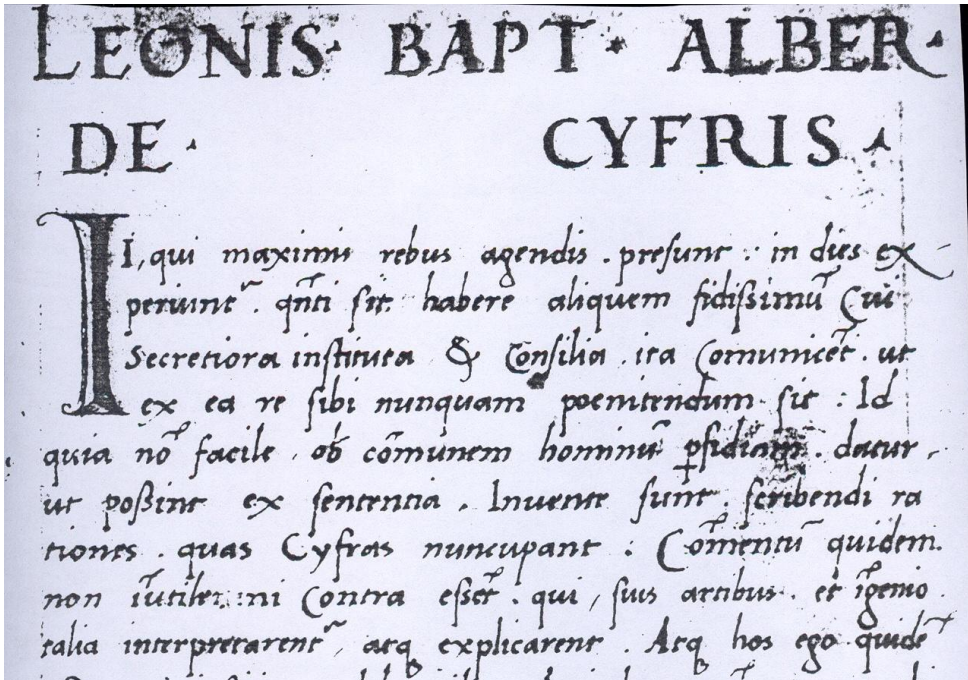 LEONIS· BAPT· ALBER·
DE· CYFRIS·
II, qui maximis rebus agendis . presunt : in dies ex
periunt᷑ . qñti sit habere aliquem fidissimũ Cui
Secretiora instituta & Consilia . ita Comunicet᷑ . ut
ex ea re sibi nunquam poenitendum sit : Id
quia nõ facile . ob cõmunem hominũ ꝑfidiam . datur .
ut poßint ex sententia . Invente sunt . scribendi ra
tiones . quas Cyfras nuncupant : Cõmentũ quidem
non ĩutile : ni Contra esset᷑ . qui , suis artibus . et ĩgenio
talia interpretarent᷑ , atq explicarent . Atq hos ego quidẽ